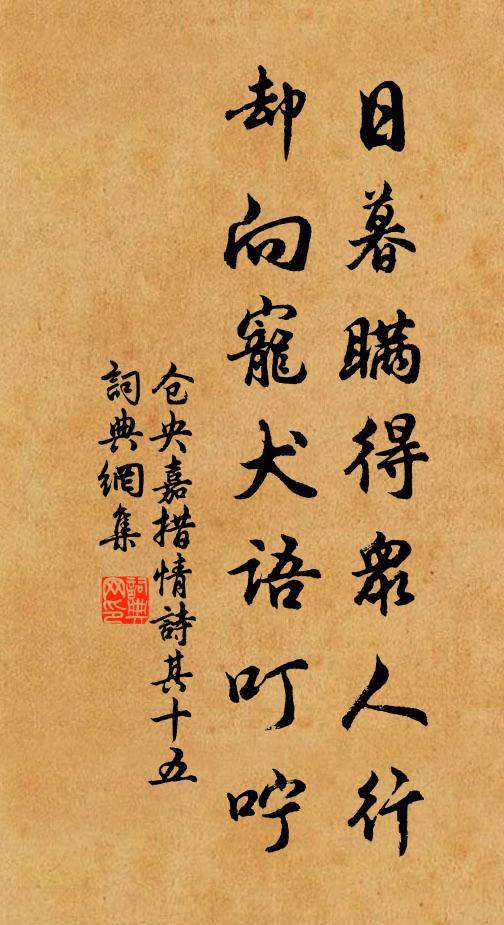 日暮瞞得眾人行
却向寵犬語叮咛
仓央嘉措情詩其十五
詞典網集
詞典網印